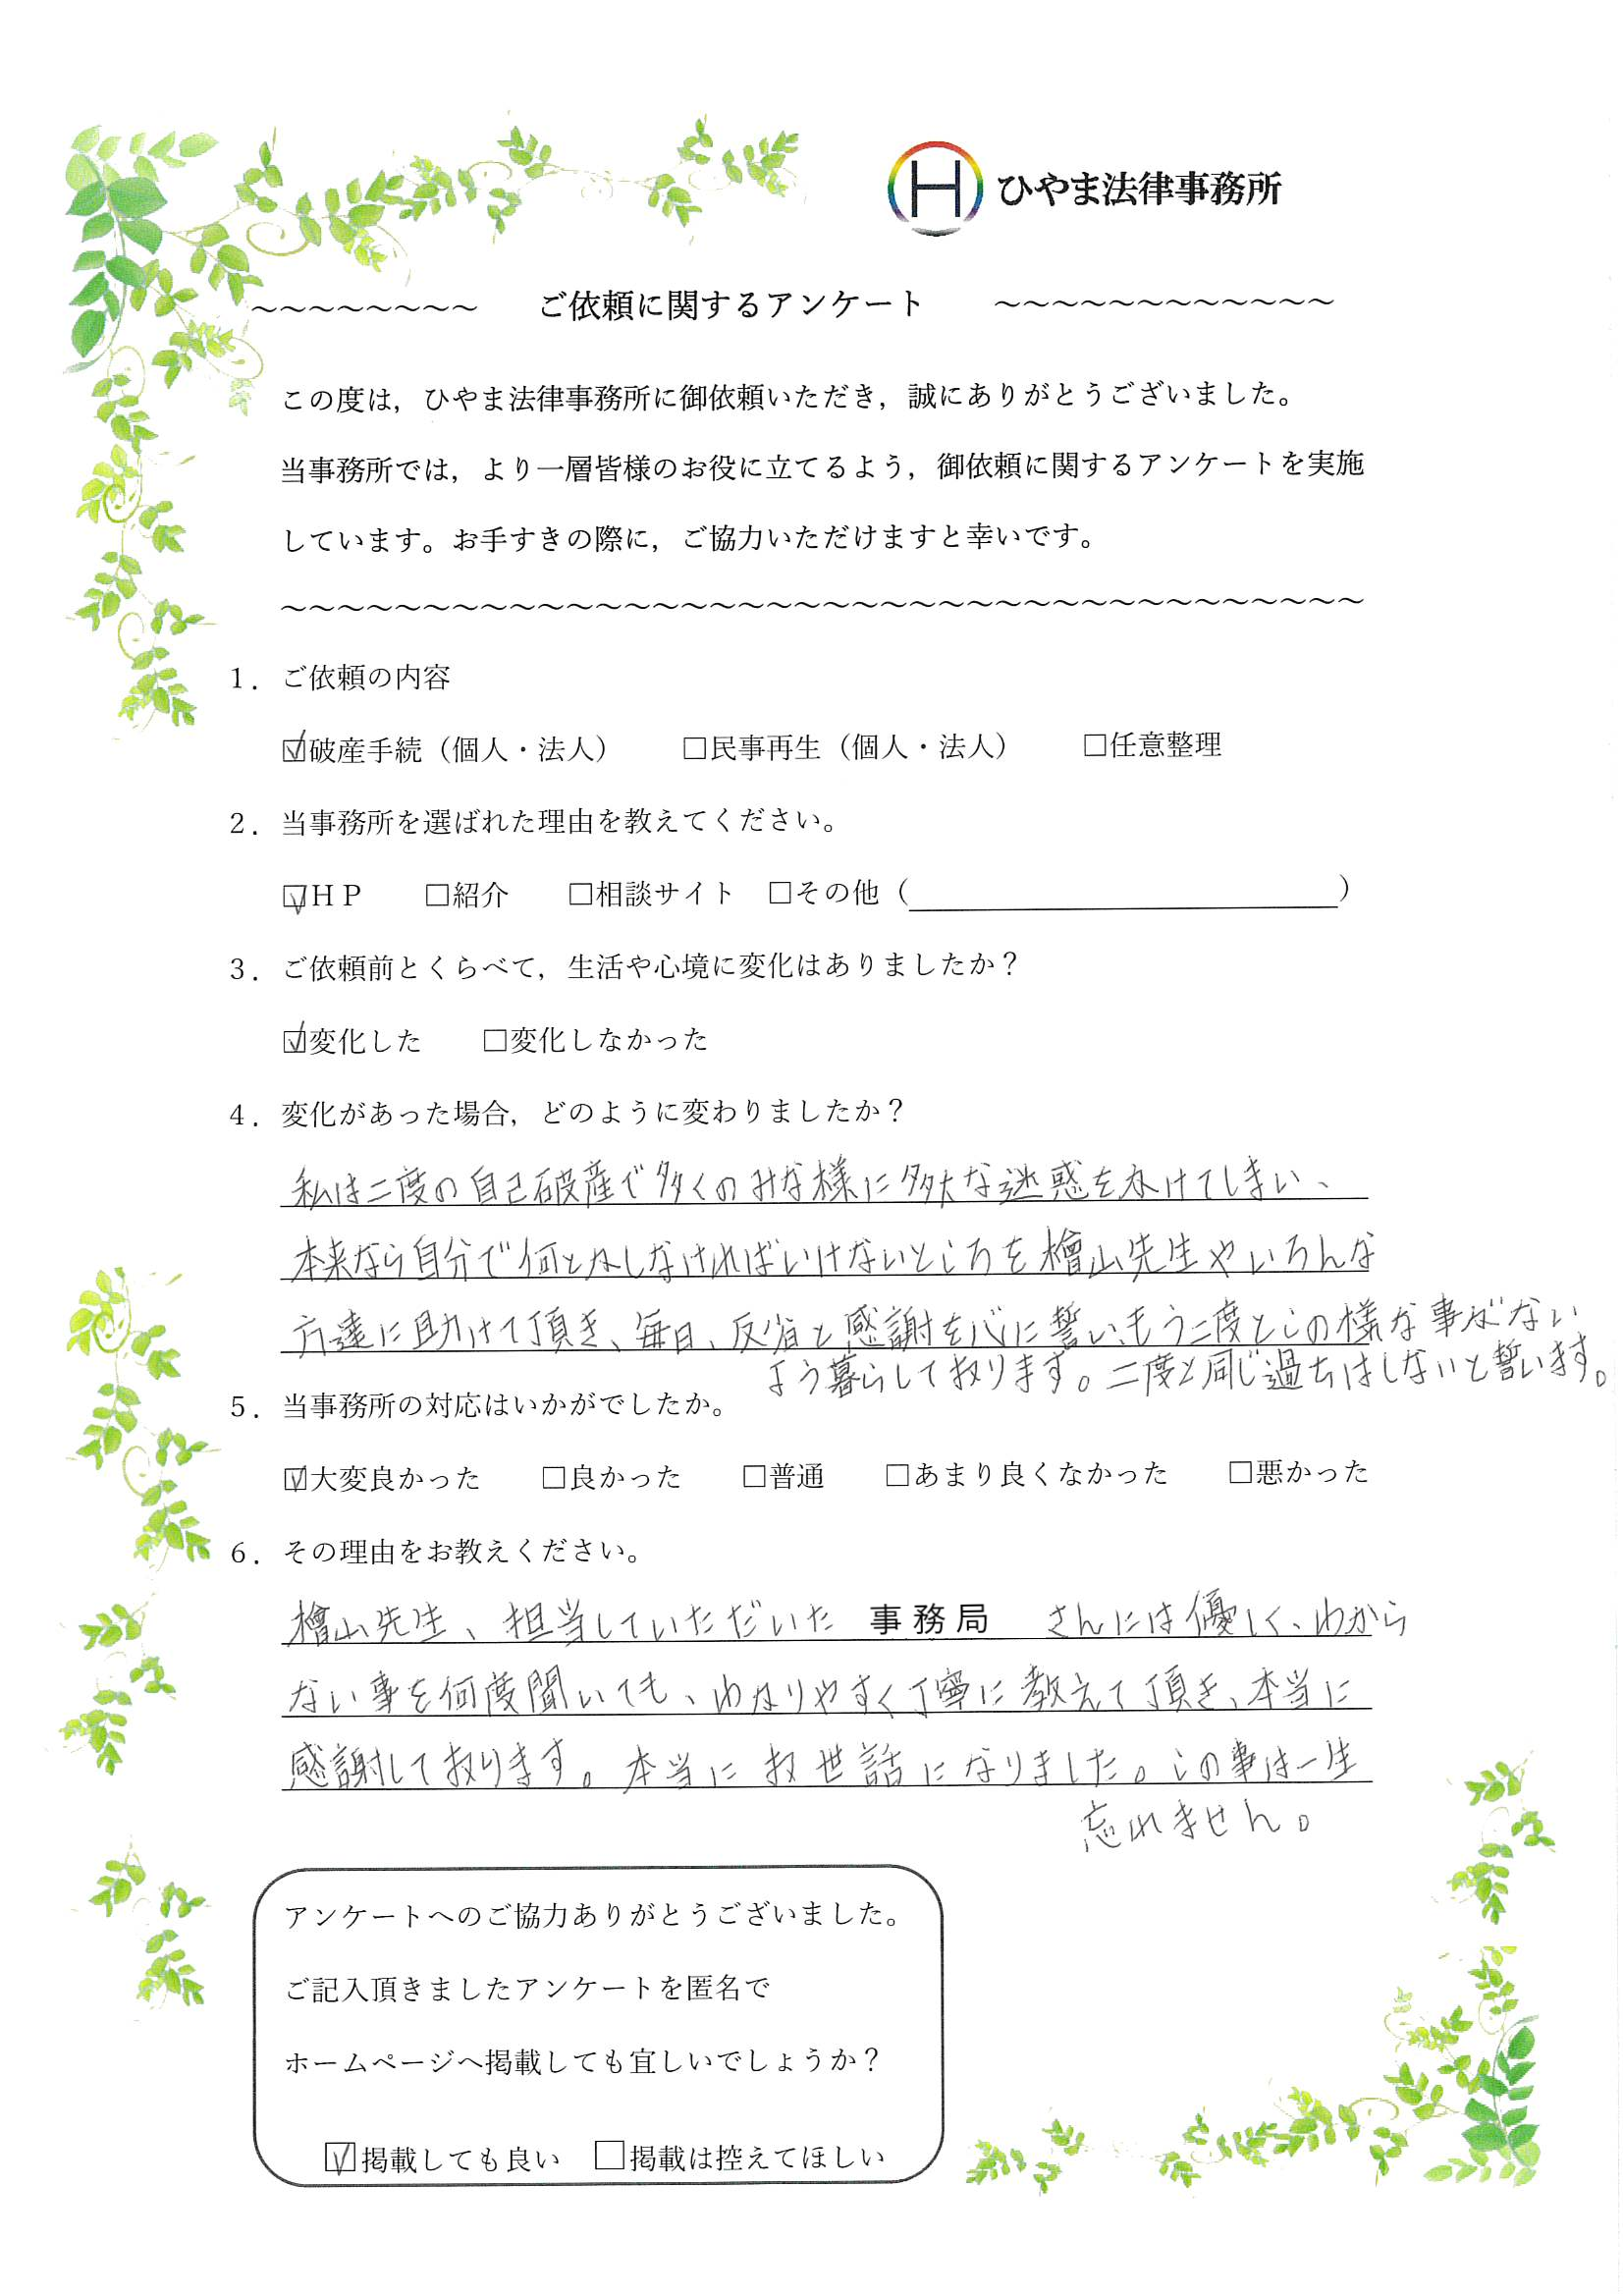 H ひやま法律事務所
～～～～～～～～ ご依頼に関するアンケート ～～～～～～～～～～～～
この度は，ひやま法律事務所に御依頼いただき，誠にありがとうございました。
当事務所では，より一層皆様のお役に立てるよう，御依頼に関するアンケートを実施
しています。お手すきの際に，ご協力いただけますと幸いです。
～～～～～～～～～～～～～～～～～～～～～～～～～～～～～～～～～～～～～～
１．ご依頼の内容
☑破産手続（個人・法人） □民事再生（個人・法人） □任意整理
２．当事務所を選ばれた理由を教えてください。
☑ＨＰ □紹介 □相談サイト □その他（　　　　　）
３．ご依頼前とくらべて，生活や心境に変化はありましたか？
☑変化した □変化しなかった
４．変化があった場合，どのように変わりましたか？
私は二度の自己破産で多くのみな様に多大な迷惑をかけてしまい、
本来なら自分で何とかしなければいけないところを檜山先生やいろんな
方達に助けて頂き、毎日、反省と感謝を心に誓い、もう二度とこの様な事がない
よう暮らしております。二度と同じ過ちはしないと誓います。
５．当事務所の対応はいかがでしたか。
☑大変良かった □良かった □普通 □あまり良くなかった □悪かった
６．その理由をお教えください。
檜山先生、担当していただいた 事務局 さんには優しく、わから
ない事を何度聞いても、わかりやすく丁寧に教えて頂き、本当に
感謝しております。本当にお世話になりました。この事は一生
忘れません。
アンケートへのご協力ありがとうございました。
ご記入頂きましたアンケートを匿名で
ホームページへ掲載しても宜しいでしょうか？
☑掲載しても良い □掲載は控えてほしい